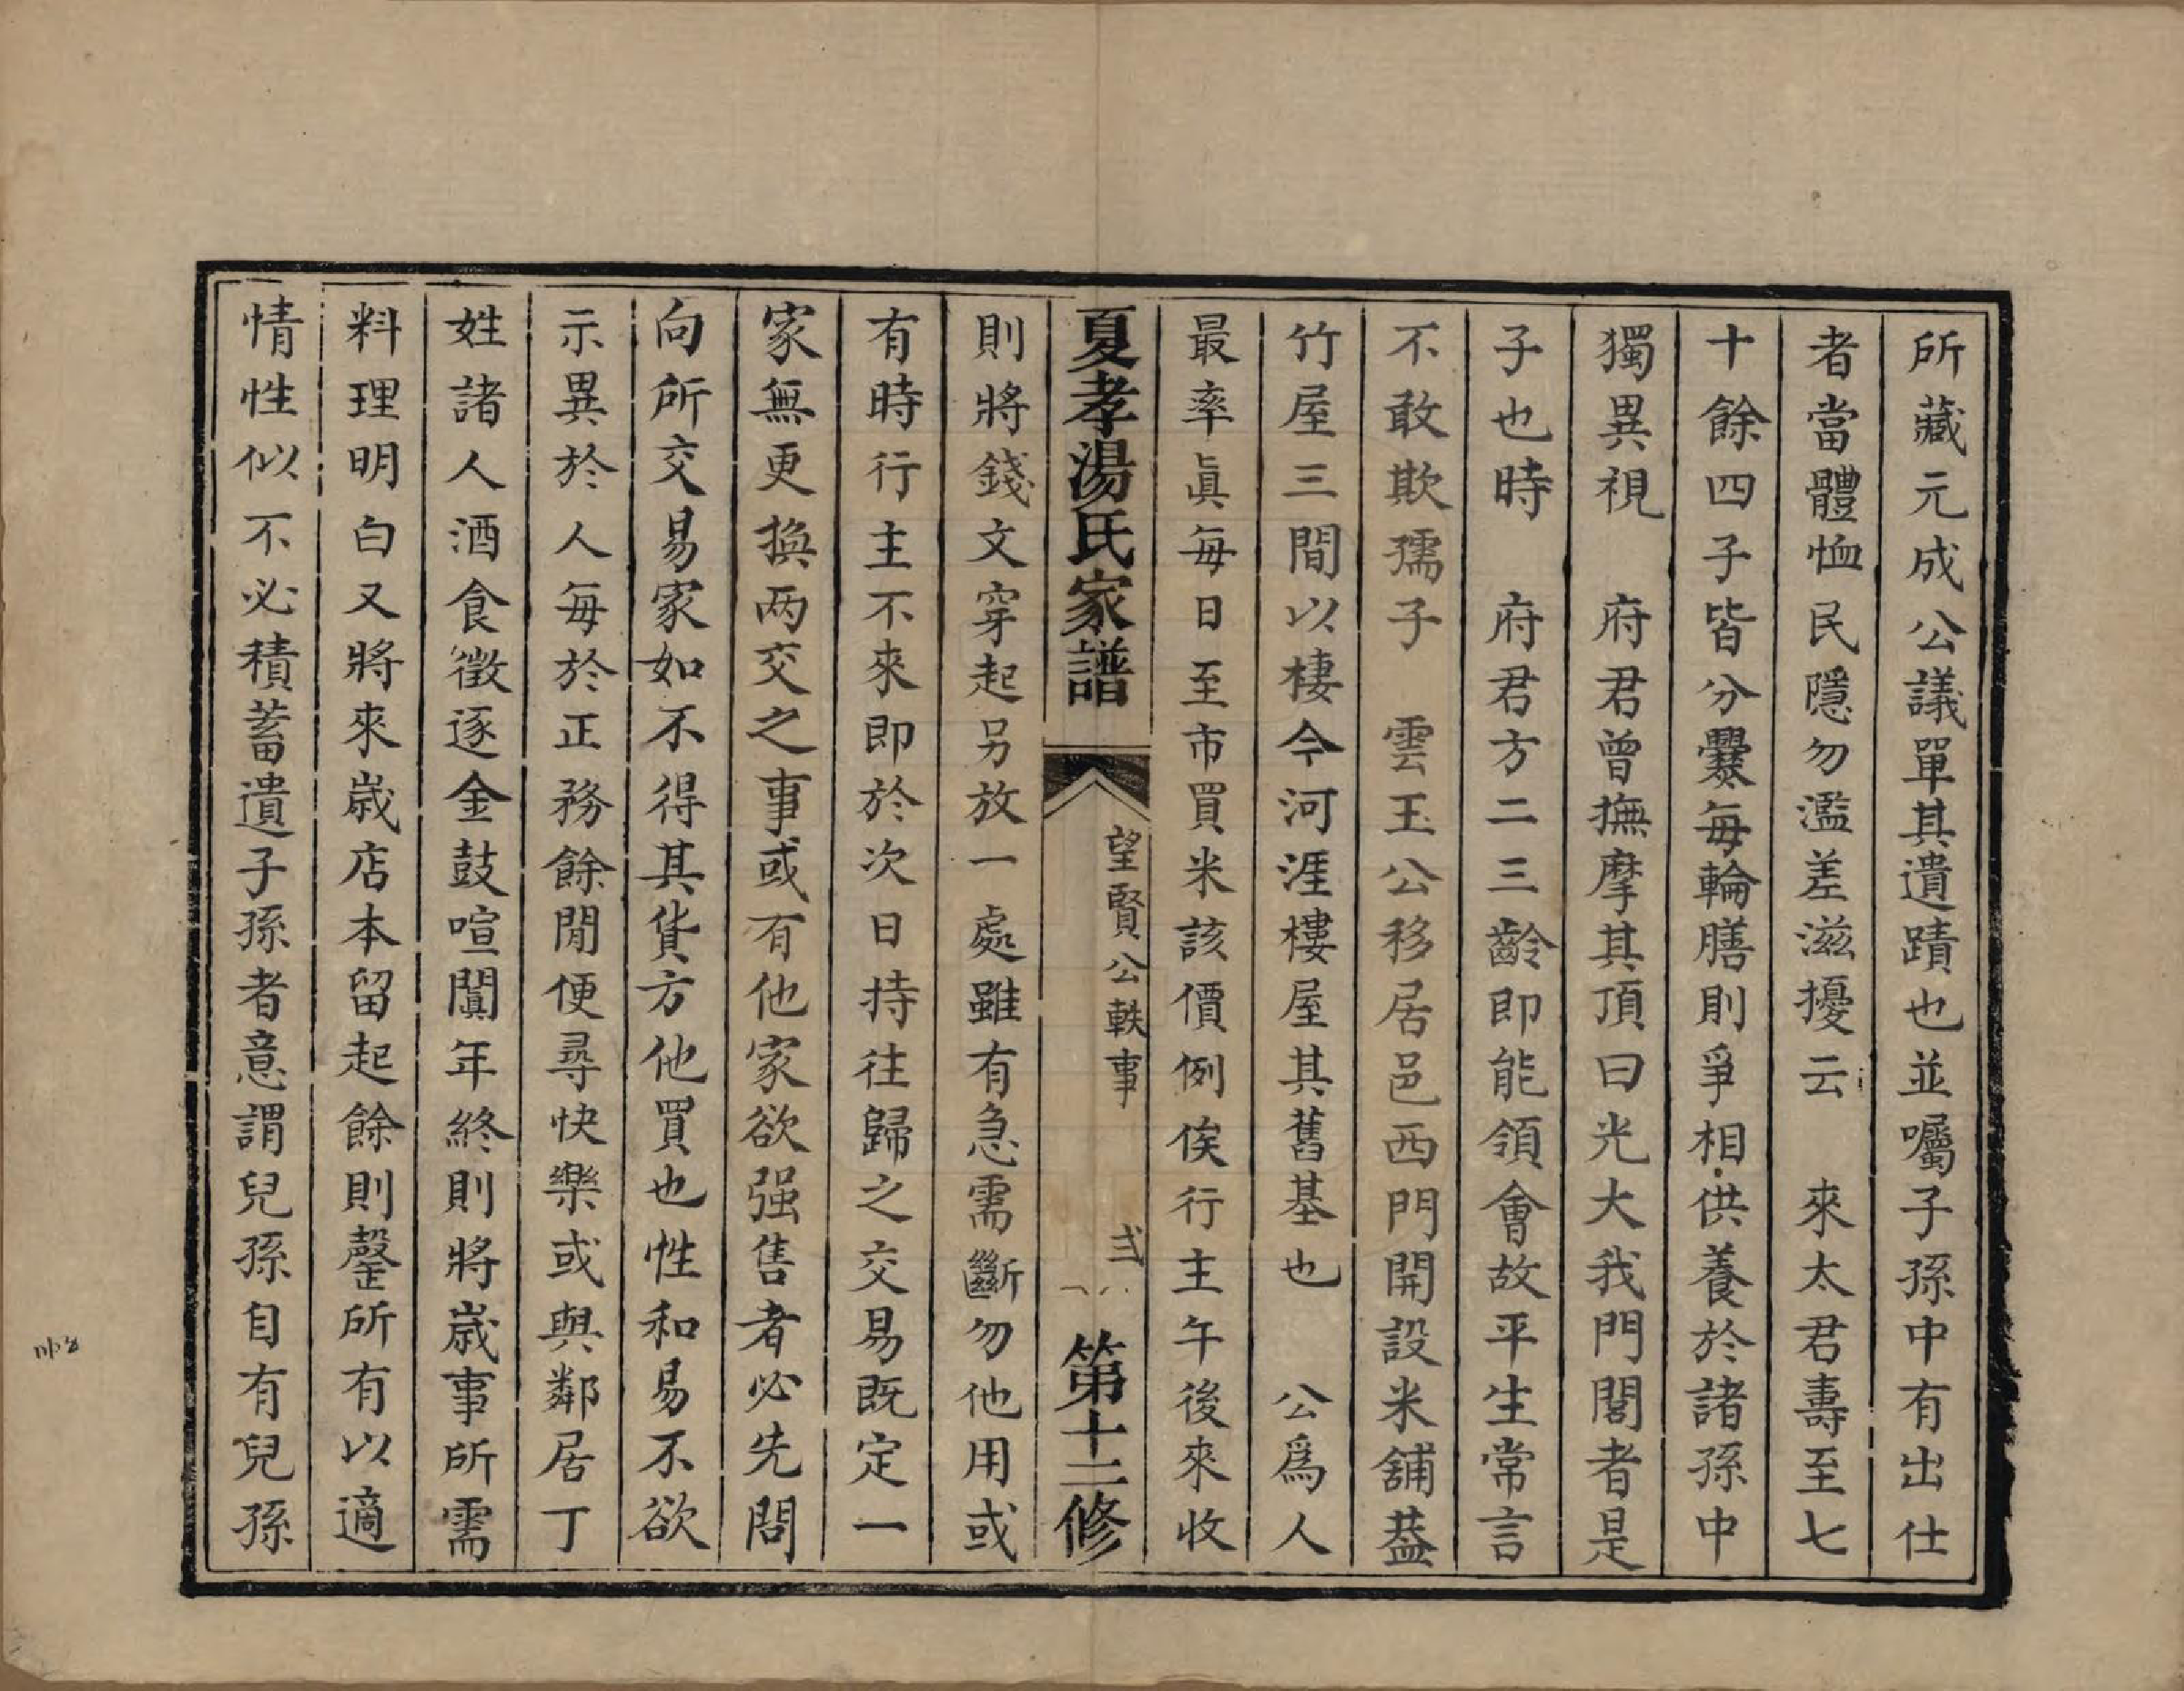 所藏元成公議單其遺蹟也並囑子孫中有出仕
者當體恤民隱勿濫差滋擾云　來太君壽至七
十餘四子皆分爨每輪膳則爭相供養於諸孫中
獨異視　府君曾撫摩其頂曰光大我門閭者是
子也時　府君方二三齡即能領會故平生常言
不敢欺孺子　雲玉公移居邑西門開設米舖葢
竹屋三間以棲今河涯樓屋其舊基也　公爲人
最率眞每日至市買米該價例俟行主午後來收
夏孝湯氏家譜　望賢公軼事　弍　第十二修
則將錢文穿起另放一處雖有急需斷勿他用或
有時行主不來即於次日持往歸之交易既定一
家無更換两交之事或有他家欲强售者必先問
向所交易家如不得其貨方他買也性和易不欲
示異於人每於正務餘閒便尋快樂或與鄰居丁
姓諸人酒食徵逐金鼓喧闐年終則將歲事所需
料理明白又將來歲店本留起餘則罄所有以適
情性似不必積蓄遺子孫者意謂兒孫自有兒孫